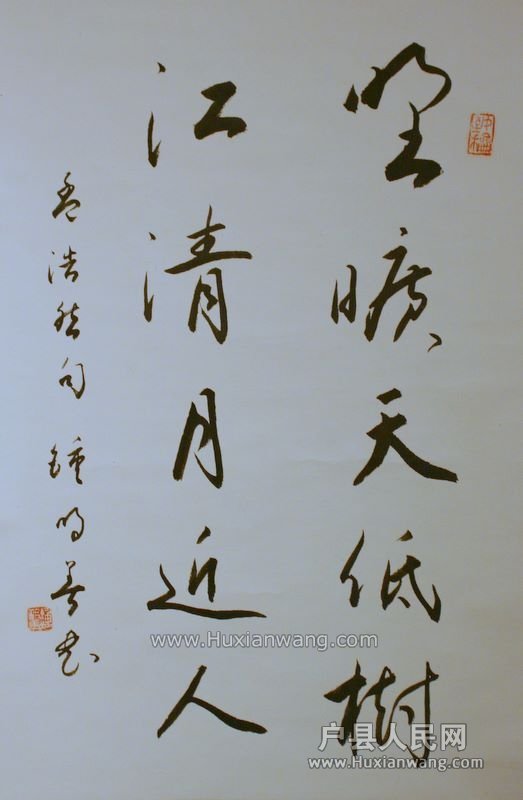 野曠天低樹
江清月近人
孟浩然句 鍾明善書
www.Huxianwang.com
户县人民网
www.Huxianwang.com